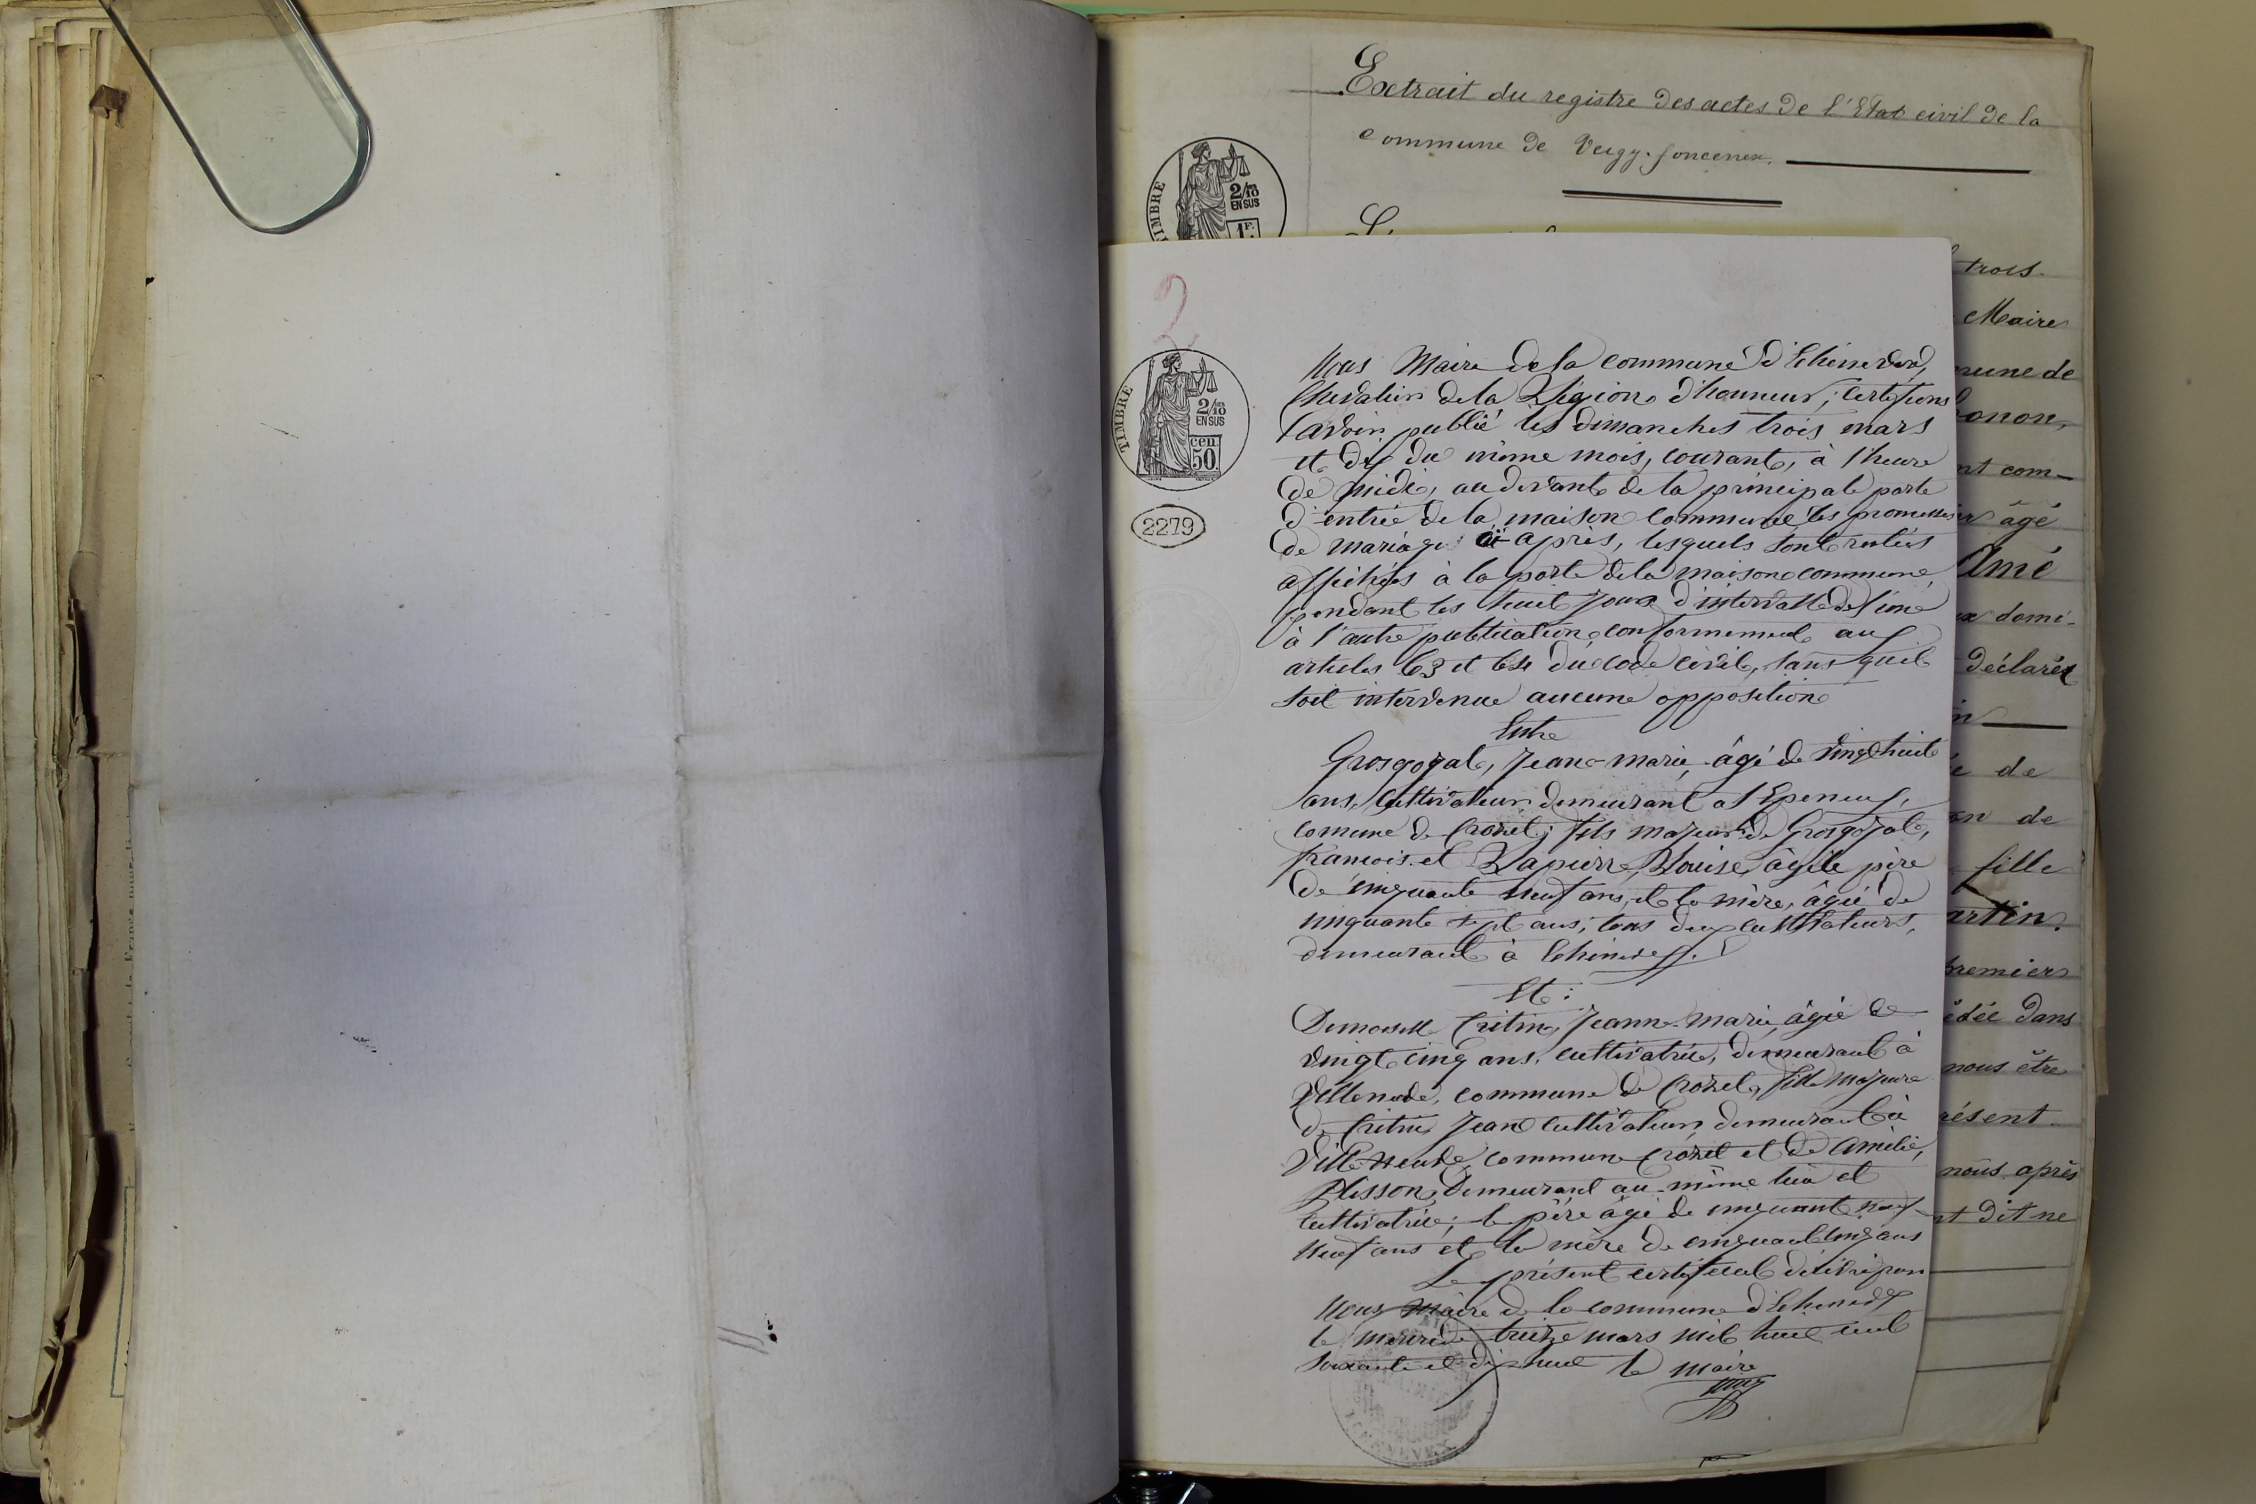 Extrait du registre des actes de l'Etat civil de la
commune de Veigy-foncenex.
TIMBRE
2/10
EN SUS
1F.
trois
Maire
mune de
onon,
nt com-
âgé
Amé
x domi-
déclaré
de
on de
fille
artin.
premier
édée dans
nous être
résent
nous après
nt dit ne
2
TIMBRE
2/10
EN SUS
cen.
50.
2279
Nous Maire de la commune d'Echenevex,
Chevalier de la Légion d'honneur, certifions
l'avoir publié les dimanches trois mars
et dix du même mois, courant, à l'heure
de midi, au devant de la principale porte
d'entrée de la maison commune les promesses
de mariage ci-après, lesquels sont restées
affichées à la porte de la maison commune,
pendant les huit jours d'intervalle de l'une
à l'autre publication conformément aux
articles 63 et 64 du code civil, sans qu'il
soit intervenue aucune opposition
Entre
Grosgojat, Jean-marie, âgé de vingt huit
ans, cultivateur demeurant a l'Epeneux,
comune de Crozet; fils majeur de Grosgojat,
francois et Lapierre, Louise, âgé le père
de cinquante neuf ans, et la mère, âgée de
cinquante sept ans, tous deux cultivateurs,
demeurant à Echenevex.
Et:
Demoiselle Critin, Jeanne-marie, âgée de
vingt cinq ans, cultivatrice, demeurant à
Villeneuve, commune de Crozet, fille majeure
de Critin Jean cultivateur demeurant à
Villeneuve, commune Crozet et de Amélie,
Plisson, demeurant au même lieu et
cultivatrice; le père âgé de cinquante neuf
neuf ans et la mère de cinquante cinq ans
Le présent certificat délivré par
Nous maire de la commune d'Echenevex
le mercredi treize mars mil huit cent
soixante et dix huit le Maire
ECHENEVEX